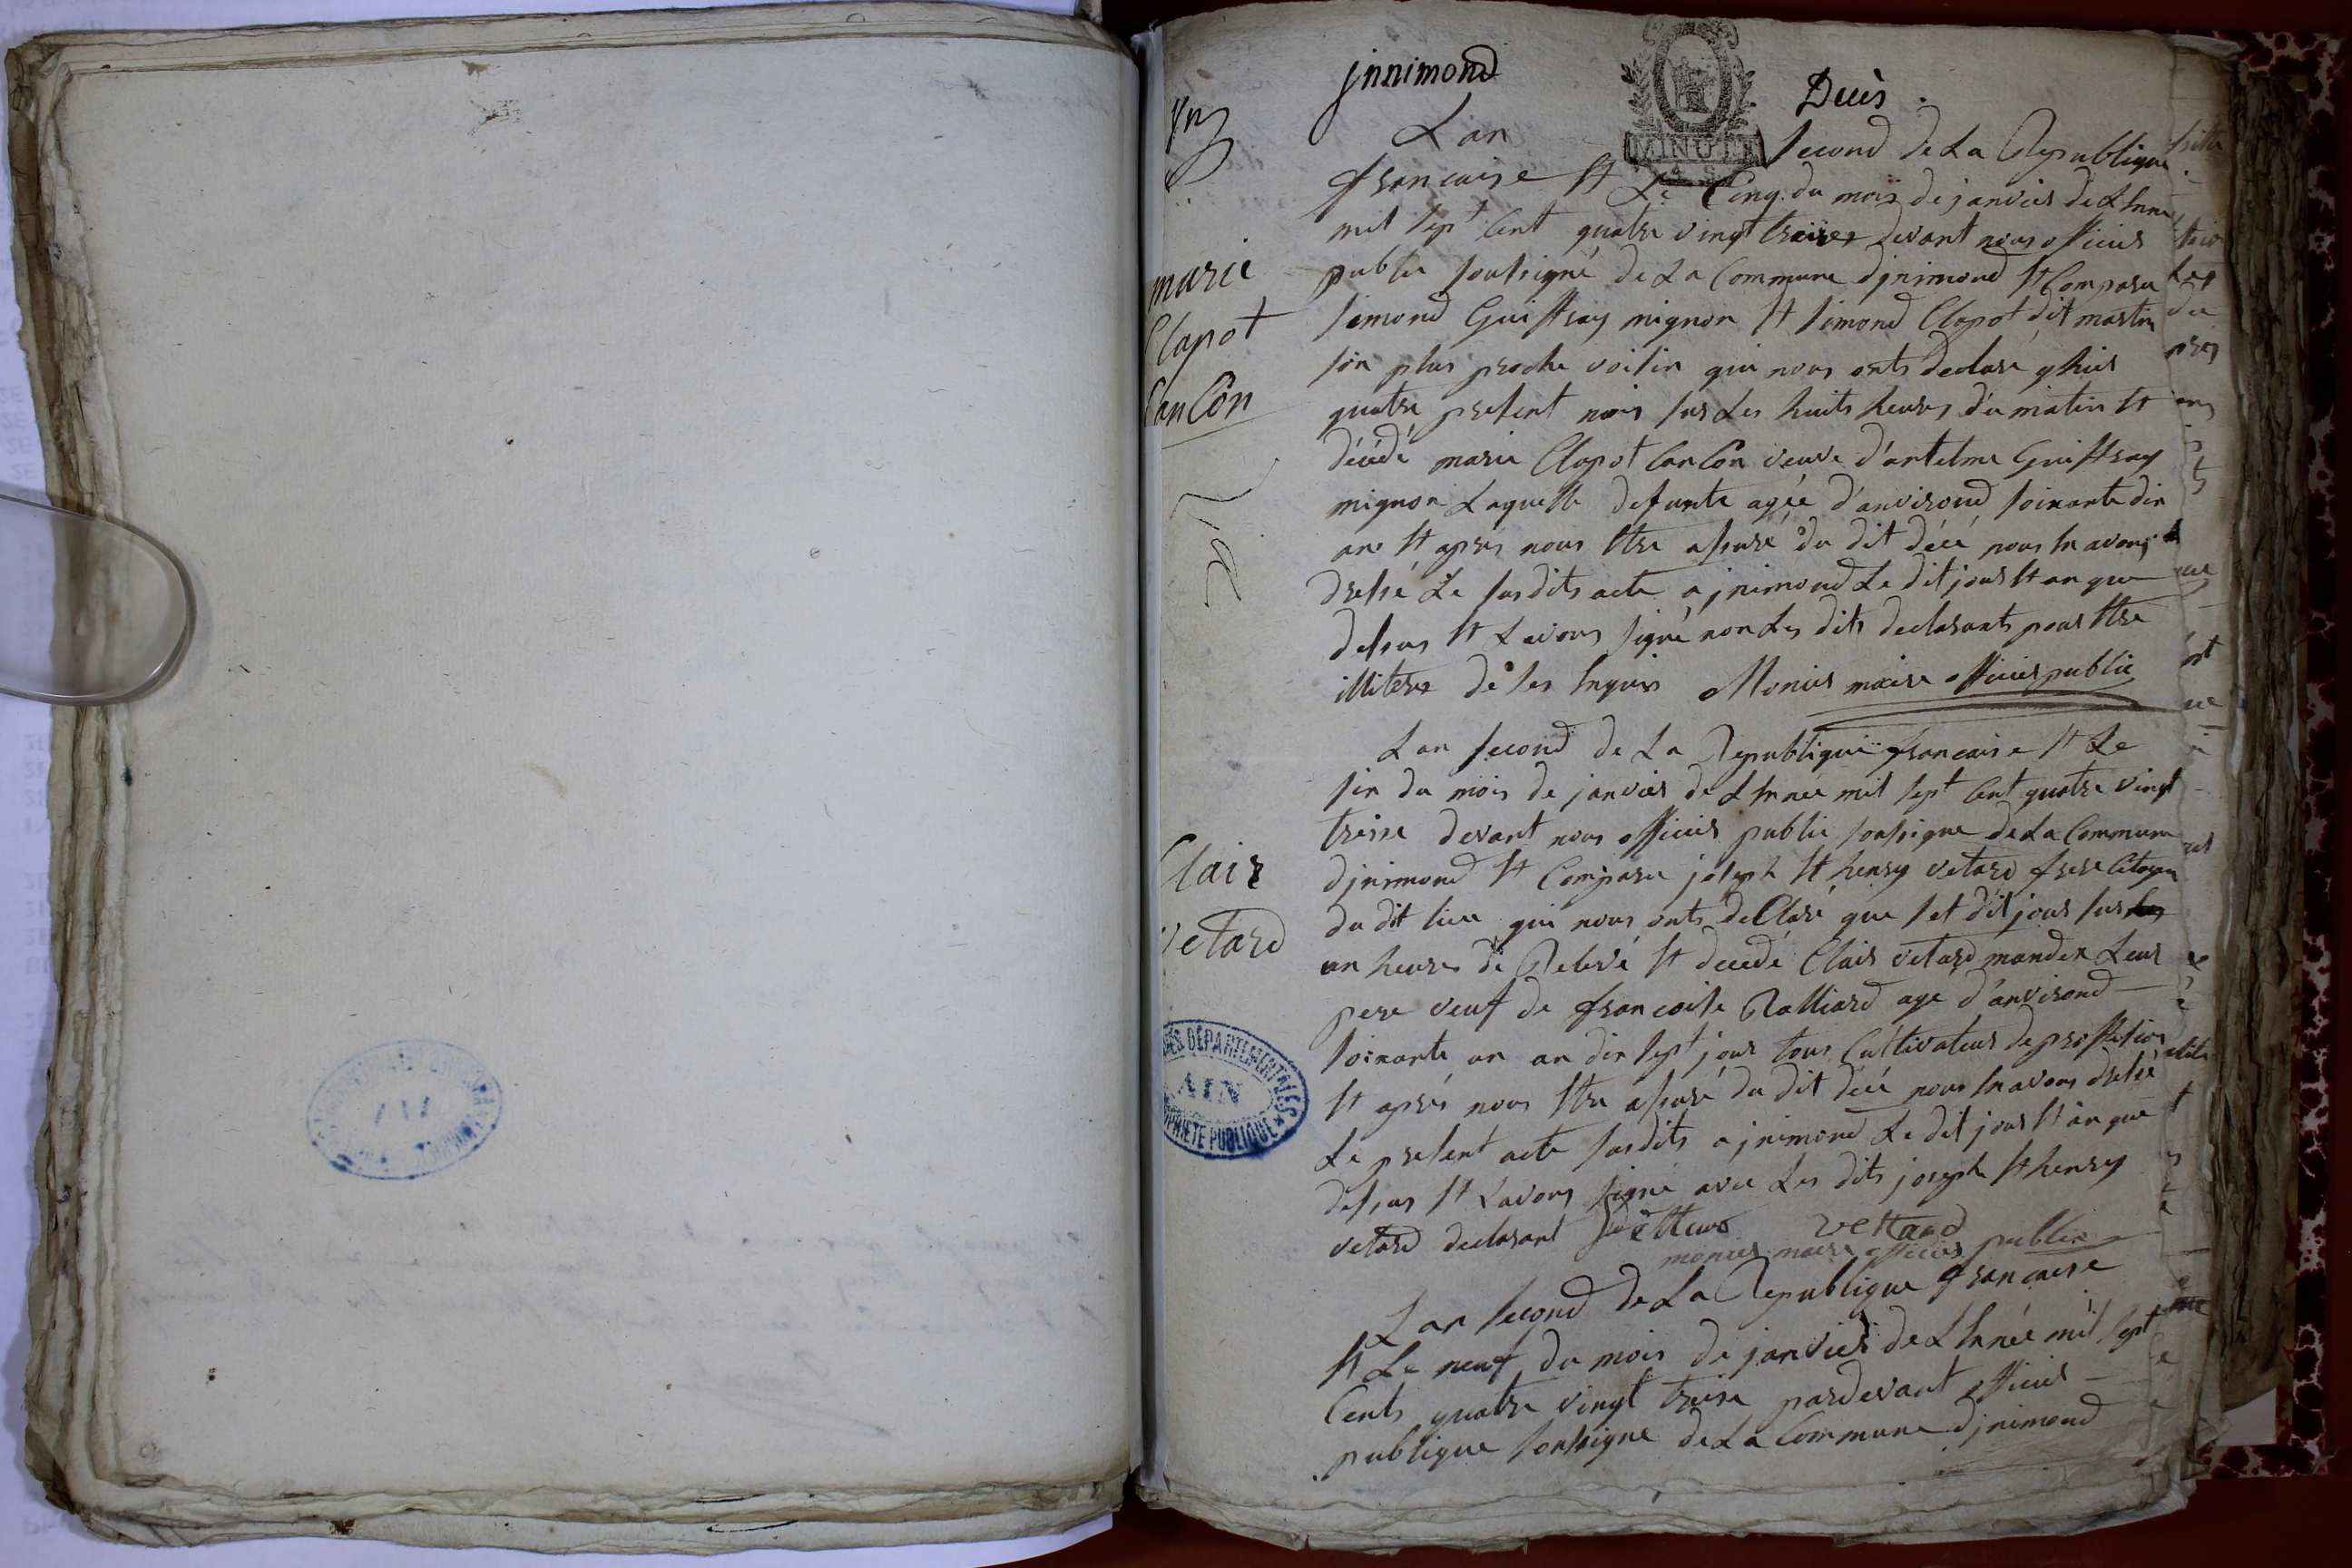 jnnimond
Décès .
MINUTE
L'an second de La Republique
francaise Et Le Cinq du mois de janvier de L'Année
mil sept Cent quatre vingt treises devant nous officier
public soussigné de La Commune d'jnimond Et Comparu
simond Guiffray mignon Et simond Clapot dit martin
son plus proche voisin qui nous onts declaré qhier
quatre present mois sur Les huits heures du matin Et
décédé marie Clapot CanCôn veuve d'antelme Guiffray
mignon Laquelle defunte agée d'anvirond soixante dix
ans Et après nous Etre assuré du dit décé nous En avons
dressé Le susdits acte a jnimond Le dit jour Et an que
dessus Et Lavons signé non Les dits declarants pour Etre
illiteres de ses Enquis Monier maire officier public
marie
Clapot
CanCôn
L'an second de La Republique francaise Et Le
six du mois de janvier de L'Année mil sept Cent quatre vingt
treise devant nous officier public soussigne de La Commune
d'jnimond Et Comparu joseph Et henry vetard frere Citoyen
du dit lieu qui nous onts deClaré que set dit jour sur
un heures de Relevé Et decedé Clair vetard mandex Leur
pere veuf de francoise Ralliard age d'anvirond
soixante un an dix sept jour tous Cultivateur de proffesion
Et après nous Etre assuré du dit décé nous En avons dressé
Le present acte susdits a jnimond Le dit jour Et an que
dessus Et Lavons signé avec Les dits joseph Et henry
vetard declarant vettard
monier maire officier public
Clair
vetard
ARCHIVES DÉPARTEMENTALES
AIN
PROPRIÉTÉ PUBLIQUE
L'an second de La Republique francaise
Et Le neuf du mois de janvier de L'Année mil sept
Cents quatre vingt treise pardevant officier
publique soussigne de La Commune d'jnimond